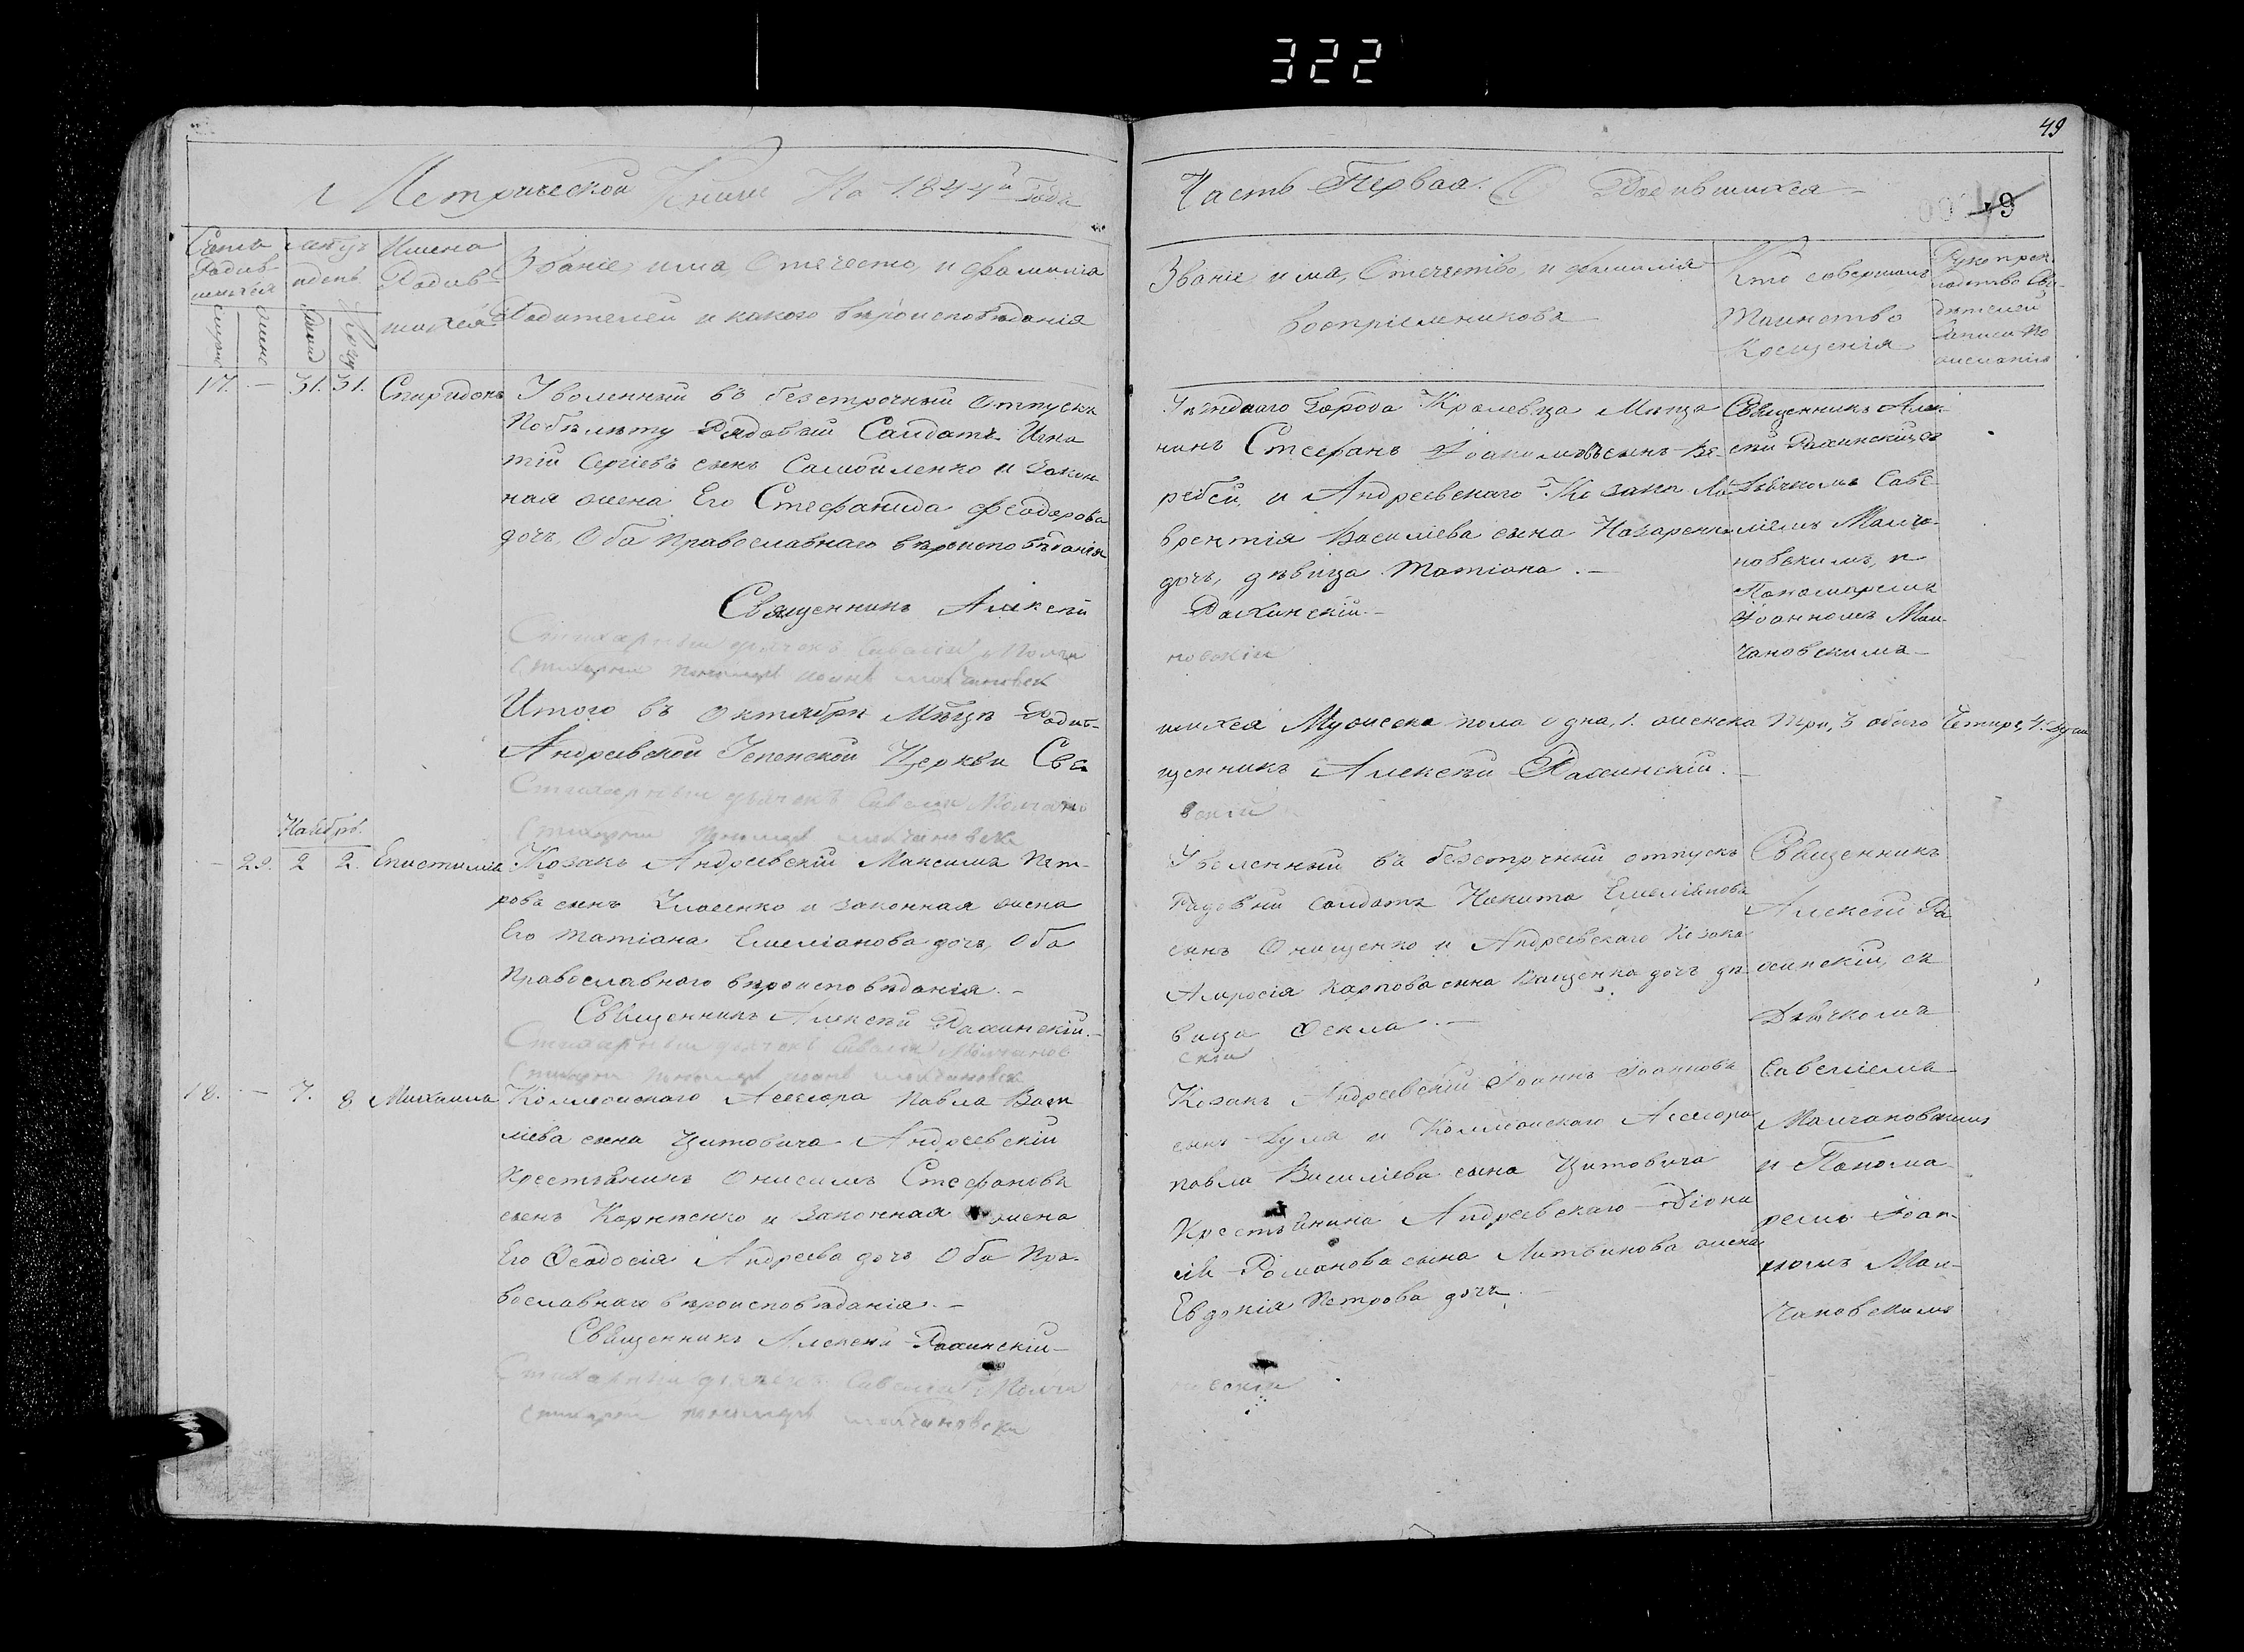 322
49
Метрической Книги На 1844й Года
Часть Первая. О Родившихся
49
Счетъ
Родив-
шихся
Имена
Родив-
шихся
Званіе, имя, Отечество, и фамилія
Родителей и какого вѣроисповѣданія
Званіе имя, Отечество, и фамилія
воспріемниковъ
Кто совершалъ
Таинство
Крещенія
Рукопри-
кладство Сви-
дѣтелей
записи по
желанію
17. — 31. 31. Спиридонъ
Уволенный въ безсрочный Отпускъ
По билету Рядовый Салдатъ Игна
тій Сергіевъ сынъ Самойленко и Закон-
ная жена Его Стефанида Феодорова
дочь. Оба православнаго вѣроисповѣданія
Священникъ Алексѣй
Стихарный дячокъ Савелій Молча
Стихарны пономаръ иоанъ молчановск
Уѣзднаго Города Кролевца Мѣща
нинъ Стефанъ Иоакимовъ сынъ Ве-
ребей, и Андреевскаго Козака Ла
врентія Василіева сына Назаренка
дочь, дѣвица Татіана. —
Рахинскій. —
новскій
Священникъ Алек-
сѣй Рахинскій съ
Дьячкомъ Саве-
ліемъ Молча-
новскимъ, и
Пономаремъ
Іоанномъ Мол-
чановскимъ
Итого въ Октябрѣ Мѣцѣ Родив-
шихся Мужеска пола одна, 1. женска три, 3 обоего Четыре, 4. душ
Андреевской Успенской Церкви Свя
щенникъ Алексѣй Рахинскій.
Стихарный дячокъ Савелій Молчано
вскій
Стихарны пономаръ молчановск
Ноябрь.
— 29. 2 2. Епистимія
Козакъ Андреевскій Максимъ Пет-
ровъ сынъ Власенко и законная жена
Его Татіана Емеліанова дочь Оба
Православнаго вѣроисповѣданія. —
Священникъ Алексѣй Рахинскій. —
Стихарный дячокъ Савелій Молчанов
скій
Стихарны пономаръ иоанъ молчановск
Уволенный въ безсрочный отпускъ
Рядовый салдатъ Никита Емеліановъ
сынъ Онищенко и Андреевскаго Козака
Амросія Карпова сына Ващенка дочь дѣ
вица Фекла. —
Священникъ
Алексѣй Ра
хинскій, съ
Дьячкомъ
Савеліемъ
Молчановскимъ
и Понома
ремъ Іоан-
номъ Мол-
чановскимъ
18. — 7. 8 Михаилъ
Коллежскаго Асесора Павла Васи
ліева сына Цитовича Андреевскій
Крестьянинъ Онисимъ Стефановъ
сынъ Корніенко и Законная жена
Его Феодосія Андреева дочь Оба Пра-
вославнаго вѣроисповѣданія. —
Священникъ Алексѣй Рахинскій —
Стихарный дячокъ Савелій Молча
новскій
Стихарны пономаръ молчановск
Козакъ Андреевскій Іоаннъ Іоанновъ
сынъ Дуля и Коллежскаго Асесора
Павла Василіева сына Цитовича
Крестьянина Андреевскаго Діони
сія Романова сына Литвинова жена
Евдокія Петрова дочь. —